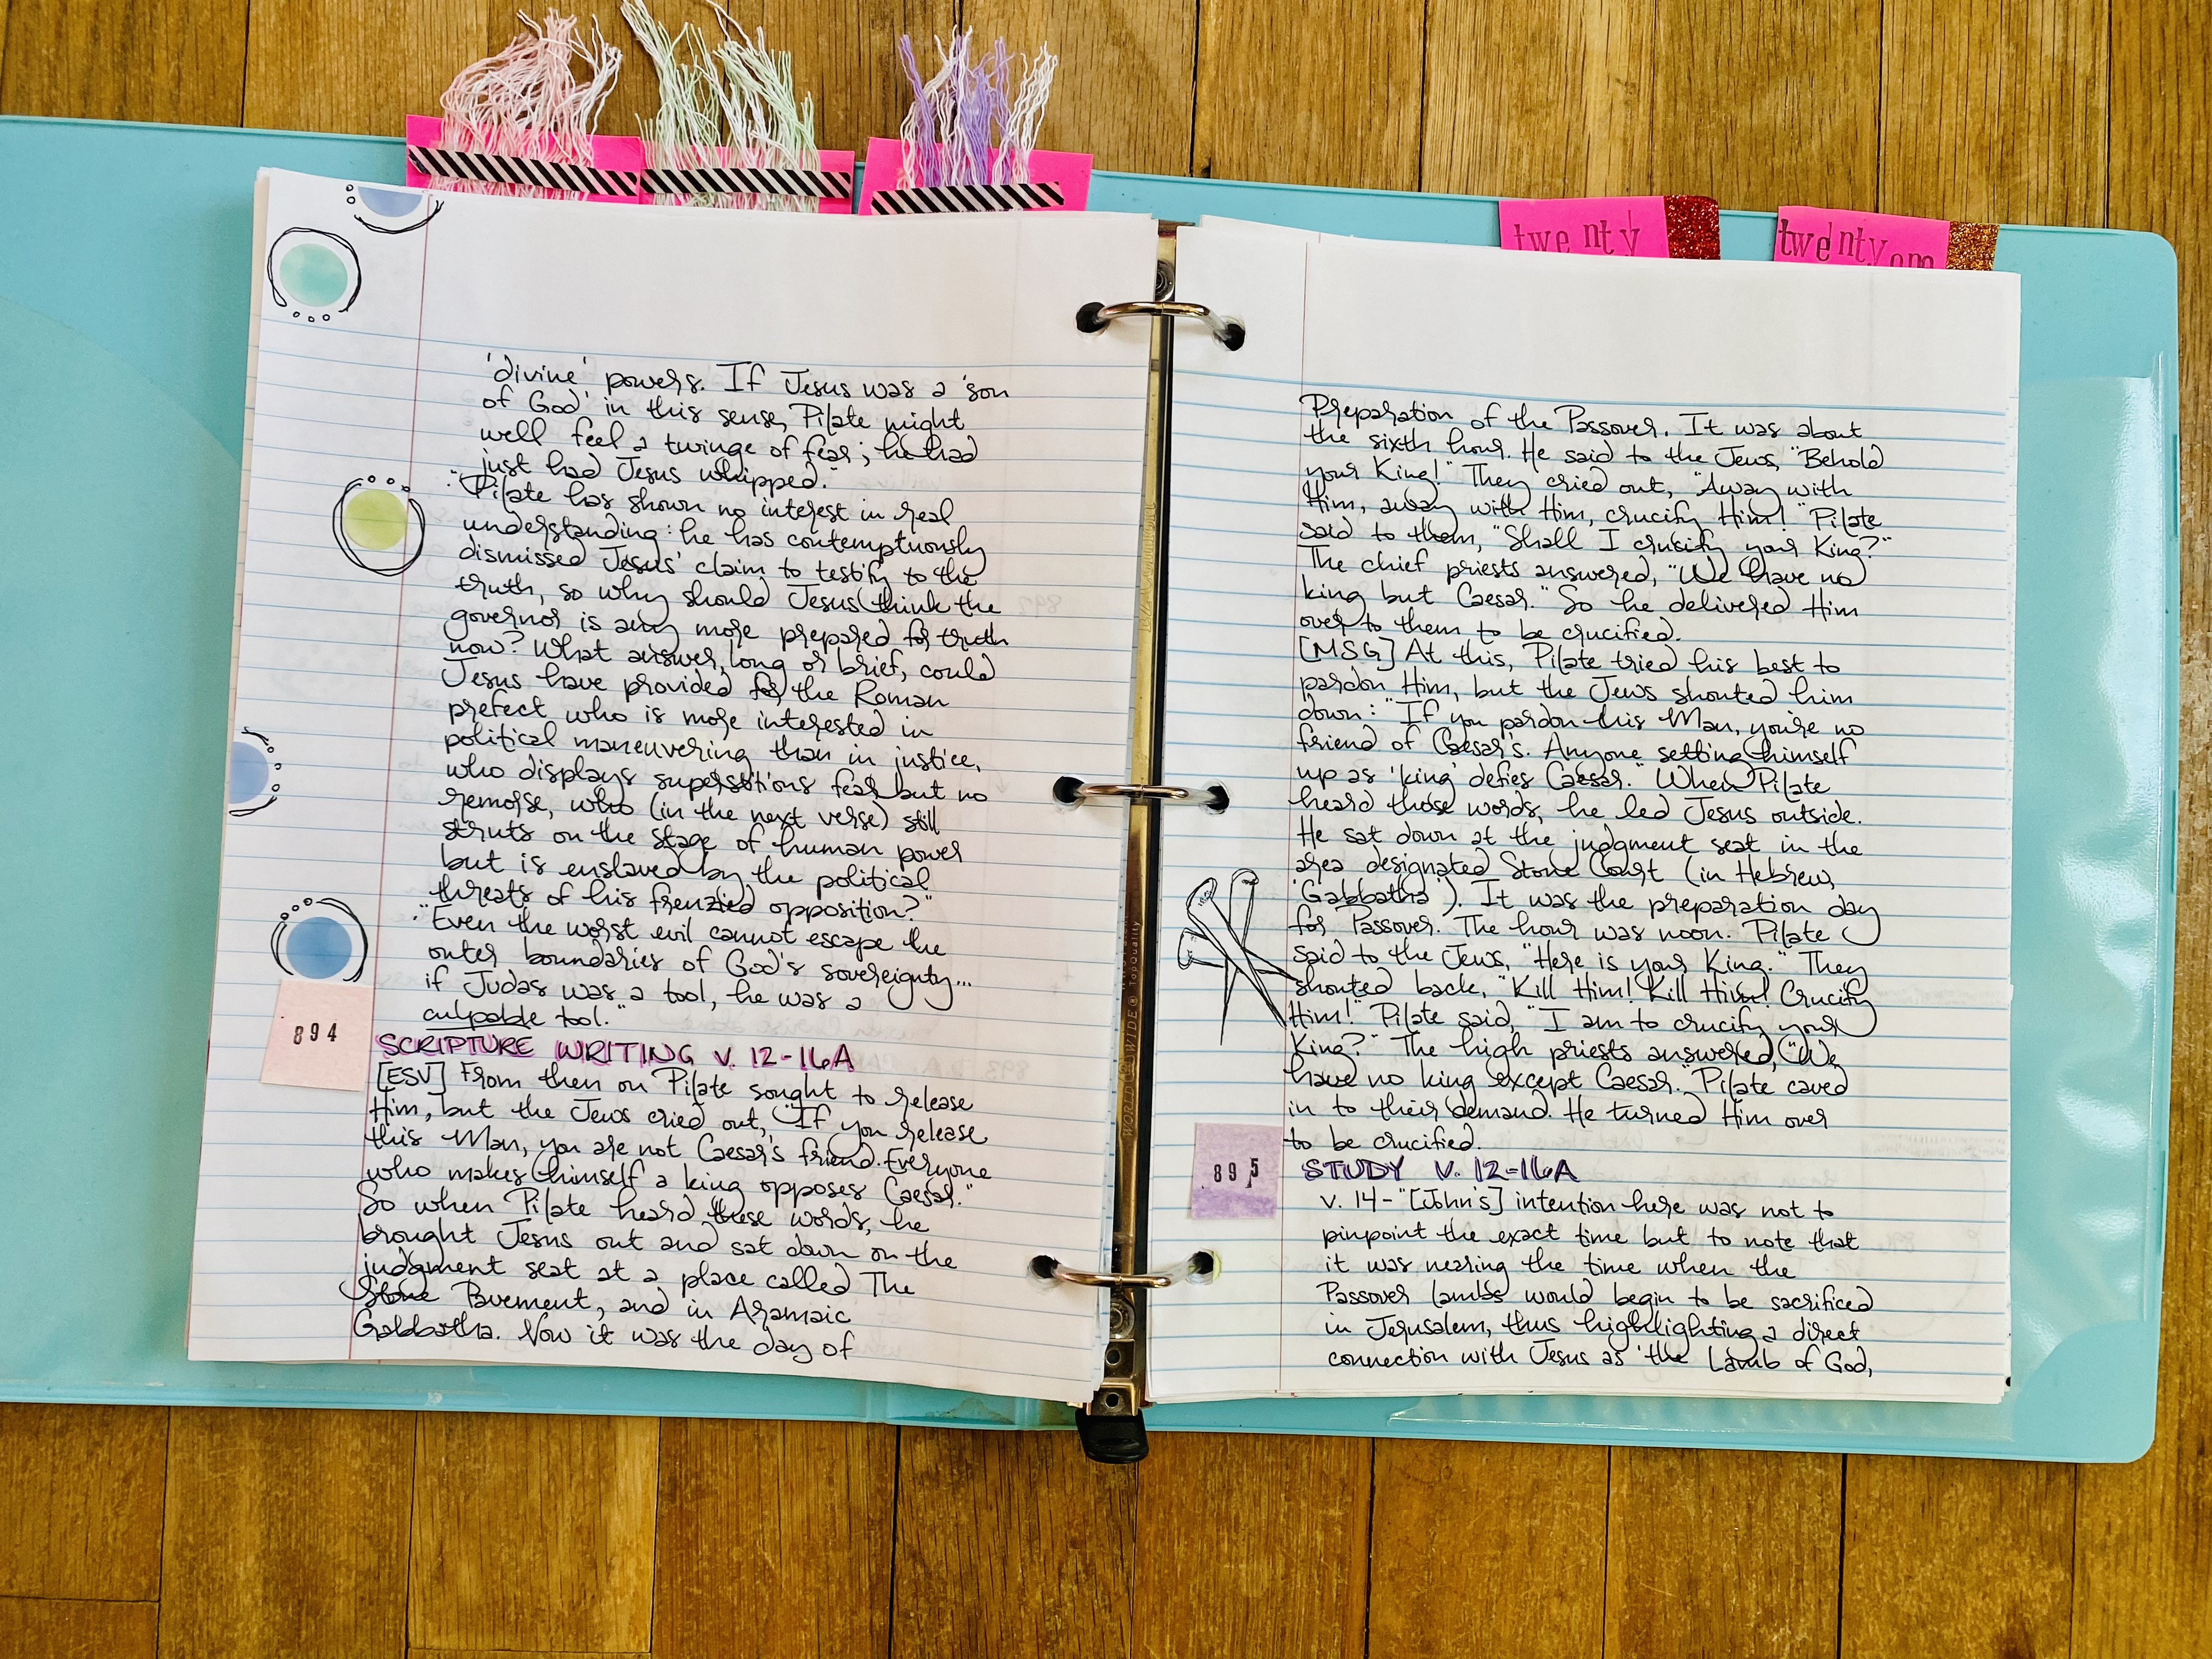 twenty
twenty one
'divine' powers. If Jesus was a 'son
of God' in this sense, Pilate might
well feel a twinge of fear; he had
just had Jesus whipped."
"Pilate has shown no interest in real
understanding: he has contemptuously
dismissed Jesus' claim to testify to the
truth, so why should Jesus think the
governor is any more prepared for truth
now? What answer, long or brief, could
Jesus have provided for the Roman
prefect who is more interested in
political maneuvering than in justice,
who displays superstitious fear but no
remorse, who (in the next verse) still
struts on the stage of human power
but is enslaved by the political
threats of his frenzied opposition?"
"Even the worst evil cannot escape the
outer boundaries of God's sovereignty...
if Judas was a tool, he was a
culpable tool."
894
SCRIPTURE WRITING V. 12-16A
[ESV] From then on Pilate sought to release
Him, but the Jews cried out, "If you release
this Man, you are not Caesar's friend. Everyone
who makes himself a king opposes Caesar."
So when Pilate heard these words, he
brought Jesus out and sat down on the
judgment seat at a place called The
Stone Pavement, and in Aramaic
Gabbatha. Now it was the day of
Preparation of the Passover. It was about
the sixth hour. He said to the Jews, "Behold
your King!" They cried out, "Away with
Him, away with Him, crucify Him!" Pilate
said to them, "Shall I crucify your King?"
The chief priests answered, "We have no
king but Caesar." So he delivered Him
over to them to be crucified.
[MSG] At this, Pilate tried his best to
pardon Him, but the Jews shouted him
down: "If you pardon this Man, you're no
friend of Caesar's. Anyone setting himself
up as 'king' defies Caesar." When Pilate
heard those words, he led Jesus outside.
He sat down at the judgment seat in the
area designated Stone Court (in Hebrew,
'Gabbatha'). It was the preparation day
for Passover. The hour was noon. Pilate
said to the Jews, "Here is your King." They
shouted back, "Kill Him! Kill Him! Crucify
Him!" Pilate said, "I am to crucify your
King?" The high priests answered, "We
have no king except Caesar." Pilate caved
in to their demand. He turned Him over
to be crucified.
895
STUDY V. 12-16A
v. 14 - "[John's] intention here was not to
pinpoint the exact time but to note that
it was nearing the time when the
Passover lambs would begin to be sacrificed
in Jerusalem, thus highlighting a direct
connection with Jesus as 'the Lamb of God,